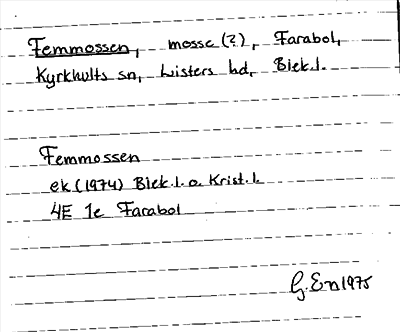 Femmossen, mosse (?), Farabol,
Kyrkhults sn, Listers hd, Blek.l.
Femmossen
ek (1974) Blek.l. o. Krist.l.
4E 1e Farabol
G. En 1975